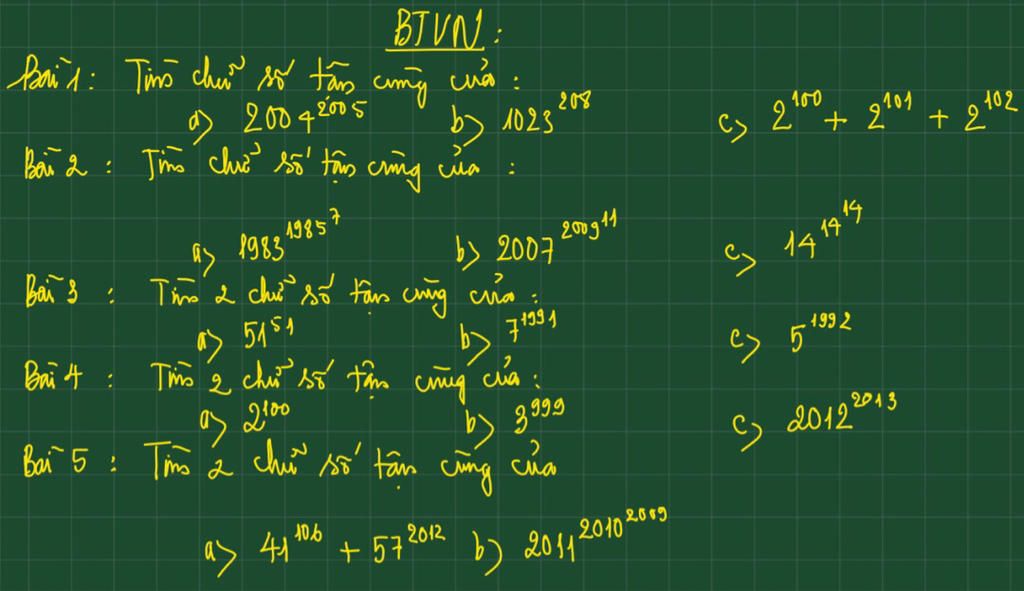 BTVN :
Bài 1 : Tìm chữ số tận cùng của :
a) 2004^2005 b) 1023^208 c) 2^100 + 2^101 + 2^102
Bài 2 : Tìm chữ số tận cùng của :
a) 1983^1985^7 b) 2007^2009^11 c) 14^14^14
Bài 3 : Tìm 2 chữ số tận cùng của :
a) 51^51 b) 7^1991 c) 5^1992
Bài 4 : Tìm 2 chữ số tận cùng của :
a) 2^100 b) 3^999 c) 2012^2013
Bài 5 : Tìm 2 chữ số tận cùng của
a) 41^106 + 57^2012 b) 2011^2010^2009